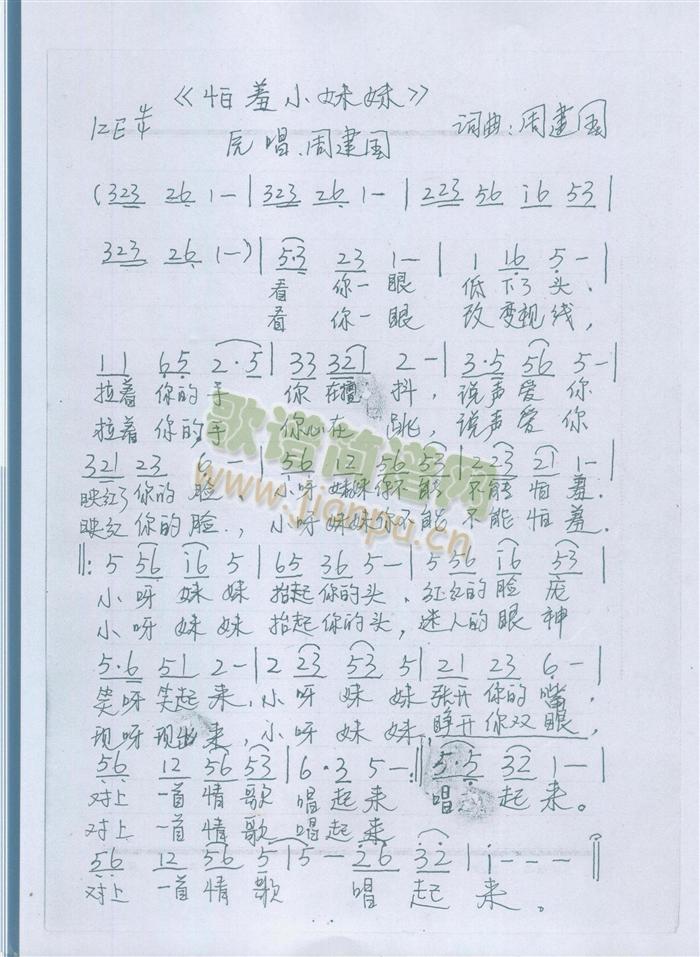 《怕羞小妹妹》
1=E 4/4
词曲:周建国
原唱.周建国
(323 26 1-|323 26 1-|223 56 i6 53|
323 26 1-)|5·3 23 1-|1 16 5-|
看 你一眼 低下了头、
看 你一眼 改变视线,
11 65 2·5|33 321 2-|3·5 56 5-|
拉着你的手 你在擅抖,说声爱你
拉着你的手 你心在跳,说声爱你
321 23 6-|56 12 56 53|223 21 1-|
映红了你的脸、小呀妹妹你不能不能怕羞.
映红你的脸.,小呀妹妹你不能不能怕羞.
‖:5 56 i6 5|65 36 5-|5 56 i6 53|
小呀妹妹抬起你的头、红红的脸庞
小呀妹妹抬起你的头,迷人的眼神
5·6 51 2-|2 23 53 5|21 23 6-|
笑呀笑起来,小呀妹妹张开你的嘴,
现呀现出来,小呀妹妹睁开你双眼,
56 12 56 53|6·3 5-:‖5·5 32 1-|
对上一首情歌唱起来 唱起来。
对上一首情歌唱起来
56 12 56 5|5- 26 32|i---‖
对上一首情歌 唱起来。
歌谱简谱网
www.jianpu.cn